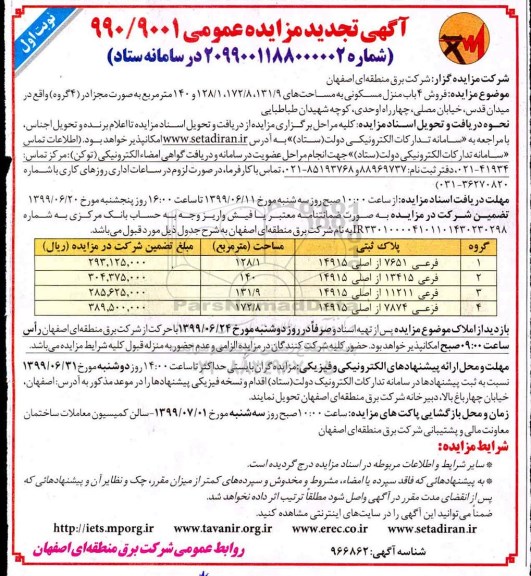 نوبت اول
آگهی تجدید مزایده عمومی ۹۹۰/۹۰۰۱
(شماره ۲۰۹۹۰۰۱۱۸۸۰۰۰۰۰۲ در سامانه ستاد)
شرکت مزایده گزار: شرکت برق منطقه‌ای اصفهان
موضوع مزایده: فروش ۴ باب منزل مسکونی به مساحت‌های ۱۳۱/۹، ۱۷۲/۸، ۱۲۸/۱ و ۱۴۰ مترمربع به صورت مجزا در (۴ گروه) واقع در
میدان قدس، خیابان مصلی، چهارراه اوحدی، کوچه شهیدان طباطبایی
نحوه دریافت و تحویل اسناد مزایده: کلیه مراحل برگزاری مزایده از دریافت و تحویل اسناد مزایده تا اعلام برنده و تحویل اجناس،
با مراجعه به «سامانه تدارکات الکترونیکی دولت (ستاد)» به آدرس www.setadiran.ir امکانپذیر خواهد بود. (اطلاعات تماس
«سامانه تدارکات الکترونیکی دولت (ستاد)» جهت انجام مراحل عضویت در سامانه و دریافت گواهی امضاء الکترونیکی (توکن): مرکز تماس:
۰۲۱-۴۱۹۳۴، دفتر ثبت نام: ۸۸۹۶۹۷۳۷ و ۸۵۱۹۳۷۶۸-۰۲۱، تماس با کارفرما، در صورت لزوم در ساعات اداری روزهای کاری با شماره
۰۳۱-۳۶۲۷۰۸۲۰)
مهلت دریافت اسناد مزایده: از ساعت ۱۰:۰۰ صبح روز سه‌شنبه مورخ ۱۳۹۹/۰۶/۱۱ تا ساعت ۱۶:۰۰ روز پنجشنبه مورخ ۱۳۹۹/۰۶/۲۰
تضمین شرکت در مزایده به صورت ضمانتنامه معتبر یا فیش واریز وجه به حساب بانک مرکزی به شماره
به نام شرکت برق منطقه‌ای اصفهان به شرح جدول ذیل مورد قبول می‌باشد.
گروه پلاک ثبتی مساحت (مترمربع) مبلغ تضمین شرکت در مزایده (ریال)
۱ ۷۶۵۱ فرعی از اصلی ۱۴۹۱۵ ۱۲۸/۱ ۲۹۳,۱۲۵,۰۰۰
۲ ۱۳۴۱۵ فرعی از اصلی ۱۴۹۱۵ ۱۴۰ ۳۰۴,۳۷۵,۰۰۰
۳ ۱۱۲۱۱ فرعی از اصلی ۱۴۹۱۵ ۱۳۱/۹ ۲۸۵,۶۲۵,۰۰۰
۴ ۷۸۷۴ فرعی از اصلی ۱۴۹۱۵ ۱۷۲/۸ ۳۸۹,۵۰۰,۰۰۰
بازدید از املاک موضوع مزایده پس از تهیه اسناد و صرفاً در روز دوشنبه مورخ ۱۳۹۹/۰۶/۲۴ با حرکت از شرکت برق منطقه‌ای اصفهان رأس
ساعت ۰۹:۰۰ صبح امکانپذیر خواهد بود. حضور کلیه شرکت کنندگان در مزایده الزامی و عدم حضور به منزله قبول کلیه شرایط مزایده می‌باشد.
مهلت و محل ارائه پیشنهادهای الکترونیکی و فیزیکی: مزایده گران بایستی حداکثر تا ساعت ۱۴:۰۰ روز دوشنبه مورخ ۱۳۹۹/۰۶/۳۱
نسبت به ثبت پیشنهادها در سامانه تدارکات الکترونیک دولت (ستاد) اقدام و نسخه فیزیکی پیشنهادها را در موعد مذکور به آدرس: اصفهان،
خیابان چهارباغ بالا، دبیرخانه شرکت برق منطقه‌ای اصفهان تحویل نمایند.
زمان و محل بازگشایی پاکت های مزایده: ساعت ۱۰:۰۰ صبح روز سه‌شنبه مورخ ۱۳۹۹/۰۷/۰۱- سالن کمیسیون معاملات ساختمان
معاونت مالی و پشتیبانی شرکت برق منطقه‌ای اصفهان
شرایط مزایده:
* سایر شرایط و اطلاعات مربوطه در اسناد مزایده درج گردیده است.
* به پیشنهادهائی که فاقد سپرده یا امضاء، مشروط و مخدوش و سپرده‌های کمتر از میزان مقرر، چک و نظایر آن و پیشنهادهائی که
پس از انقضای مدت مقرر در آگهی واصل شود مطلقاً ترتیب اثر داده نخواهد شد.
ضمناً می‌توانید این آگهی را در سایت‌های اینترنتی مشاهده کنید.
http://iets.mporg.ir www.tavanir.org.ir www.erec.co.ir www.setadiran.ir
شناسه آگهی: ۹۶۶۸۶۲
روابط عمومی شرکت برق منطقه‌ای اصفهان